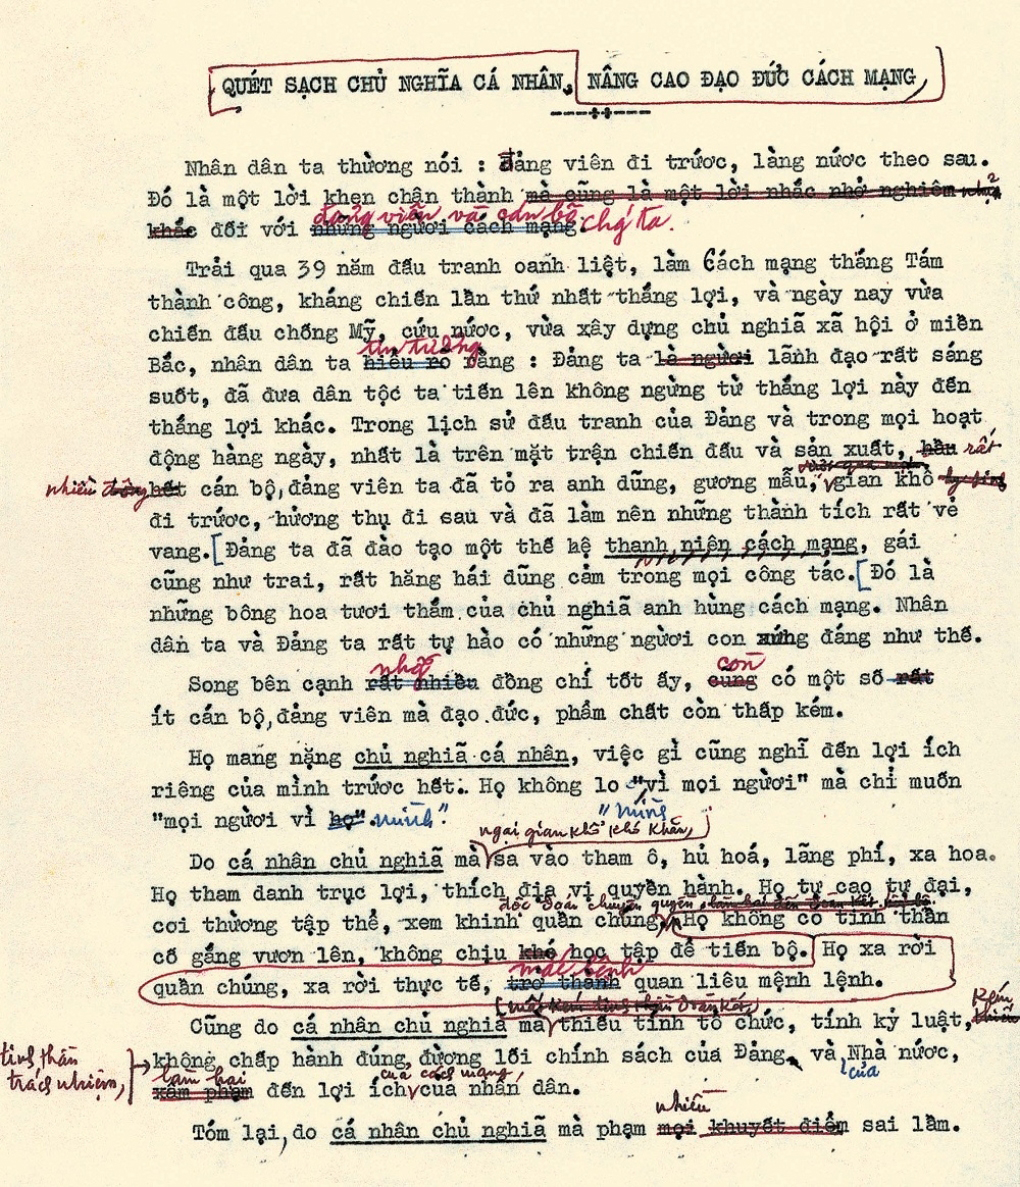 QUÉT SẠCH CHỦ NGHĨA CÁ NHÂN, NÂNG CAO ĐẠO ĐỨC CÁCH MẠNG
Nhân dân ta thường nói : Đảng viên đi trước, làng nước theo sau.
Đó là một lời khen chân thành mà cũng là một lời nhắc nhở nghiêm
đảng viên và cán bộ chúng ta.
khắc đối với những người cách mạng.
Trải qua 39 năm đấu tranh oanh liệt, làm Cách mạng tháng Tám
thành công, kháng chiến lần thứ nhất thắng lợi, và ngày nay vừa
chiến đấu chống Mỹ, cứu nước, vừa xây dựng chủ nghĩa xã hội ở miền
tin tưởng
Bắc, nhân dân ta hiểu rõ rằng : Đảng ta là người lãnh đạo rất sáng
suốt, đã đưa dân tộc ta tiến lên không ngừng từ thắng lợi này đến
thắng lợi khác. Trong lịch sử đấu tranh của Đảng và trong mọi hoạt
động hàng ngày, nhất là trên mặt trận chiến đấu và sản xuất, hầu rất
nhiều hết cán bộ, đảng viên ta đã tỏ ra anh dũng, gương mẫu, gian khổ
đi trước, hưởng thụ đi sau và đã làm nên những thành tích rất vẻ
vang. [Đảng ta đã đào tạo một thế hệ thanh niên cách mạng, gái
cũng như trai, rất hăng hái dũng cảm trong mọi công tác. [Đó là
những bông hoa tươi thắm của chủ nghĩa anh hùng cách mạng. Nhân
dân ta và Đảng ta rất tự hào có những người con xứng đáng như thế.
còn
Song bên cạnh rất nhiều đồng chí tốt ấy, cũng có một số rất
ít cán bộ, đảng viên mà đạo đức, phẩm chất còn thấp kém.
Họ mang nặng chủ nghĩa cá nhân, việc gì cũng nghĩ đến lợi ích
riêng của mình trước hết. Họ không lo "vì mọi người" mà chỉ muốn
"mọi người vì họ". mình".
"mình
ngại gian khổ khó khăn,
Do cá nhân chủ nghĩa mà sa vào tham ô, hủ hoá, lãng phí, xa hoa.
Họ tham danh trục lợi, thích địa vị quyền hành. Họ tự cao tự đại,
độc đoán chuyên quyền
coi thường tập thể, xem khinh quần chúng, Họ không có tinh thần
cố gắng vươn lên, không chịu khó học tập để tiến bộ. Họ xa rời
mắc bệnh
quần chúng, xa rời thực tế, trở thành quan liêu mệnh lệnh.
Cũng do cá nhân chủ nghĩa mà thiếu tính tổ chức, tính kỷ luật, kém
tinh thần
trách nhiệm,
không chấp hành đúng đường lối chính sách của Đảng và Nhà nước,
của
làm hại
của cách mạng,
xâm phạm đến lợi ích của nhân dân.
nhiều
Tóm lại, do cá nhân chủ nghĩa mà phạm mọi khuyết điểm sai lầm.